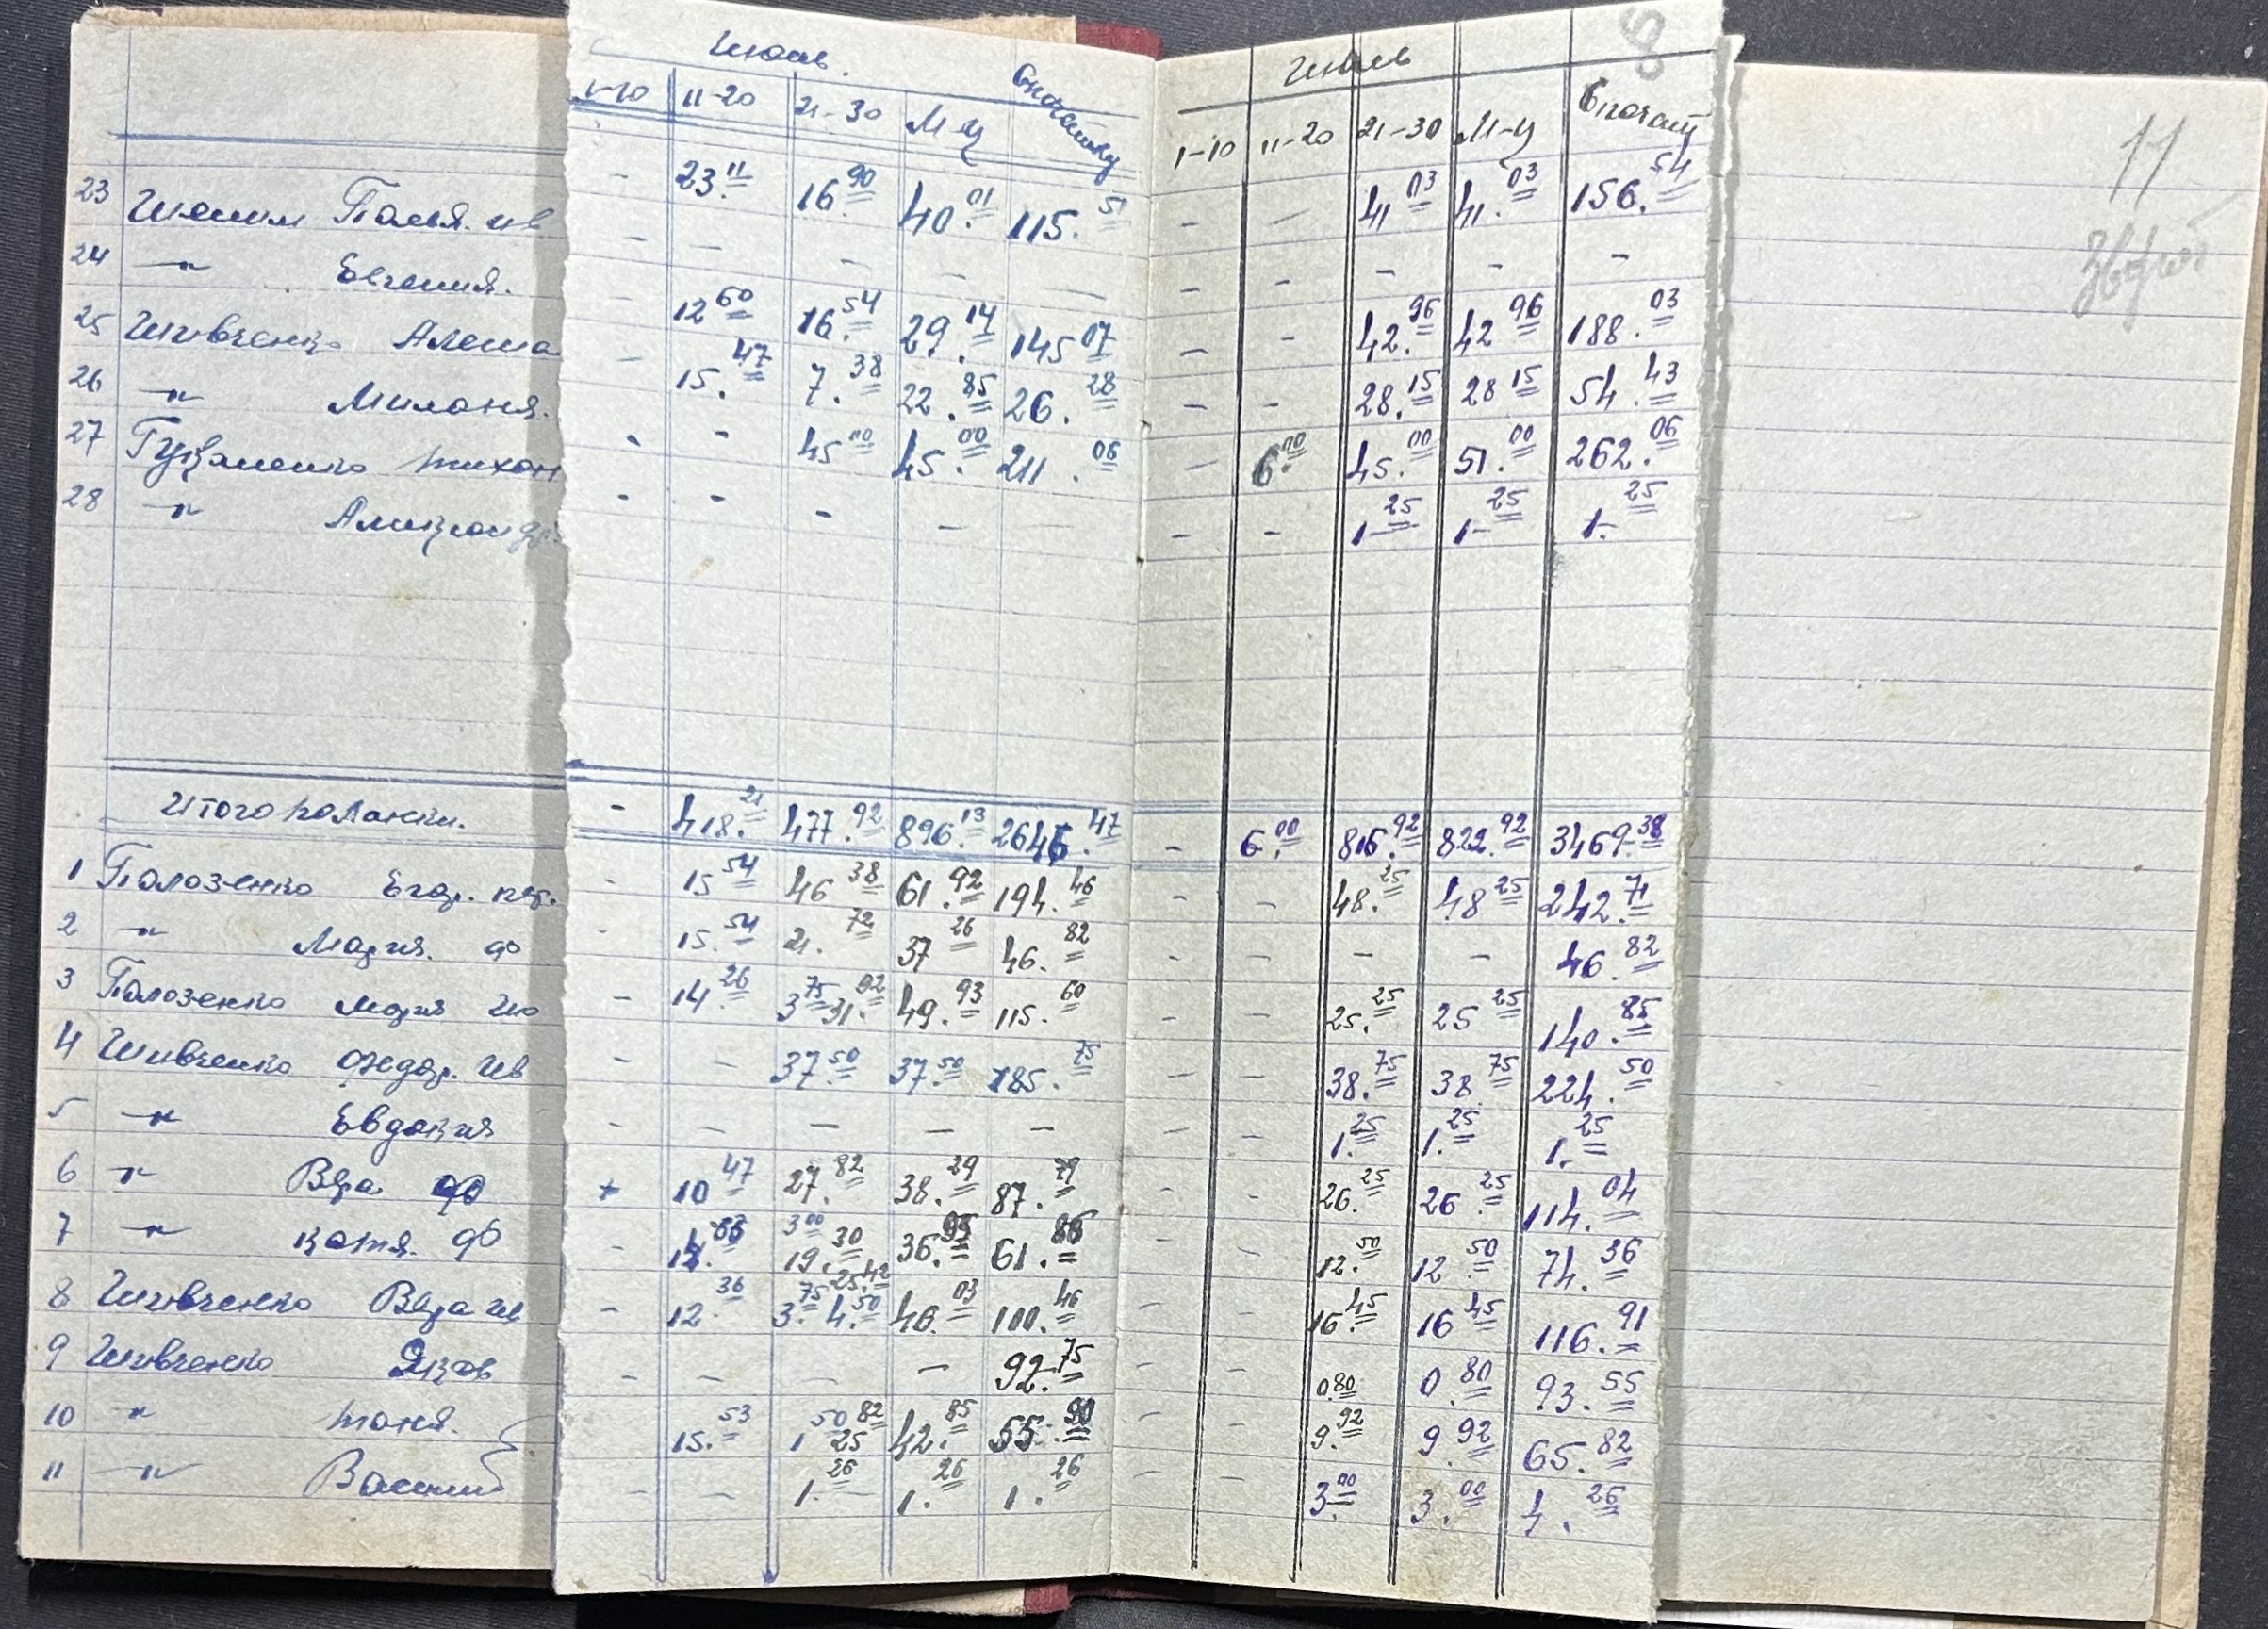 Июнь. Июль
1-10 11-20 21-30 М-ц Сначалу 1-10 11-20 21-30 М-ц Сначалу
11
23 - 23.11 16.90 40.01 115.51 - - 41.03 41.03 156.54
24 -"- Евгения. - - - - - - - - - -
25 Шивченко Алеша - 12.60 16.54 29.14 145.07 - - 42.96 42.96 188.03
26 -"- Милания. - 15.47 7.38 22.85 26.28 - - 28.15 28.15 54.43
27 Тихон - - 45.00 45.00 211.06 - 6.00 45.00 51.00 262.06
28 -"- - - - - - - 1-25 1-25 1.-25
Итого по - 418.21 477.92 896.13 2646.47 - 6.00 816.92 822.92 3469.38
1 Полозенко Егор. - 15.54 46.38 61.92 194.46 - - 48.25 48.25 242.71
2 -"- Мария. ф - 15.54 21.72 37.26 46.82 - - - - 46.82
3 Полозенко Мария - 14.26 3.75 31.92 49.93 115.60 - - 25.25 25.25 140.85
4 Шивченко Федор. Ив - - 37.50 37.50 185.75 - - 38.75 38.75 224.50
5 -"- Евдокия - - - - - - - 1.25 1.25 1.25
6 -"- Вера 10.47 27.82 38.29 87.79 - - 26.25 26.25 114.04
7 -"- Катя. - 3.00 19.30 36.95 61.86 - - 12.50 12.50 74.36
8 Шивченко Вера Ив - 12.36 3.75 25.42 4.50 46.03 100.46 - - 16.45 16.45 116.91
9 Шивченко Яков - - - - 92.75 - - 0.80 0.80 93.55
10 -"- Таня. 15.53 1.50 25.82 42.85 55.90 - - 9.92 9.92 65.82
11 -"- Василий - - 1.26 1.26 1.26 - - 3.00 3.00 4.26